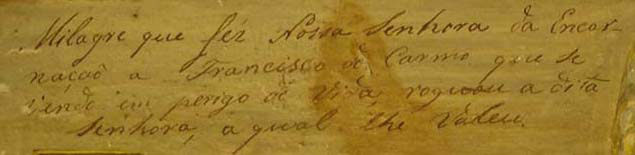 Milagre que fez Nossa Senhora da Encar-
nação a Francisco do Carmo que se
vendo em perigo de Vida, rogou a dita
Senhora, a qual lhe Valeu.